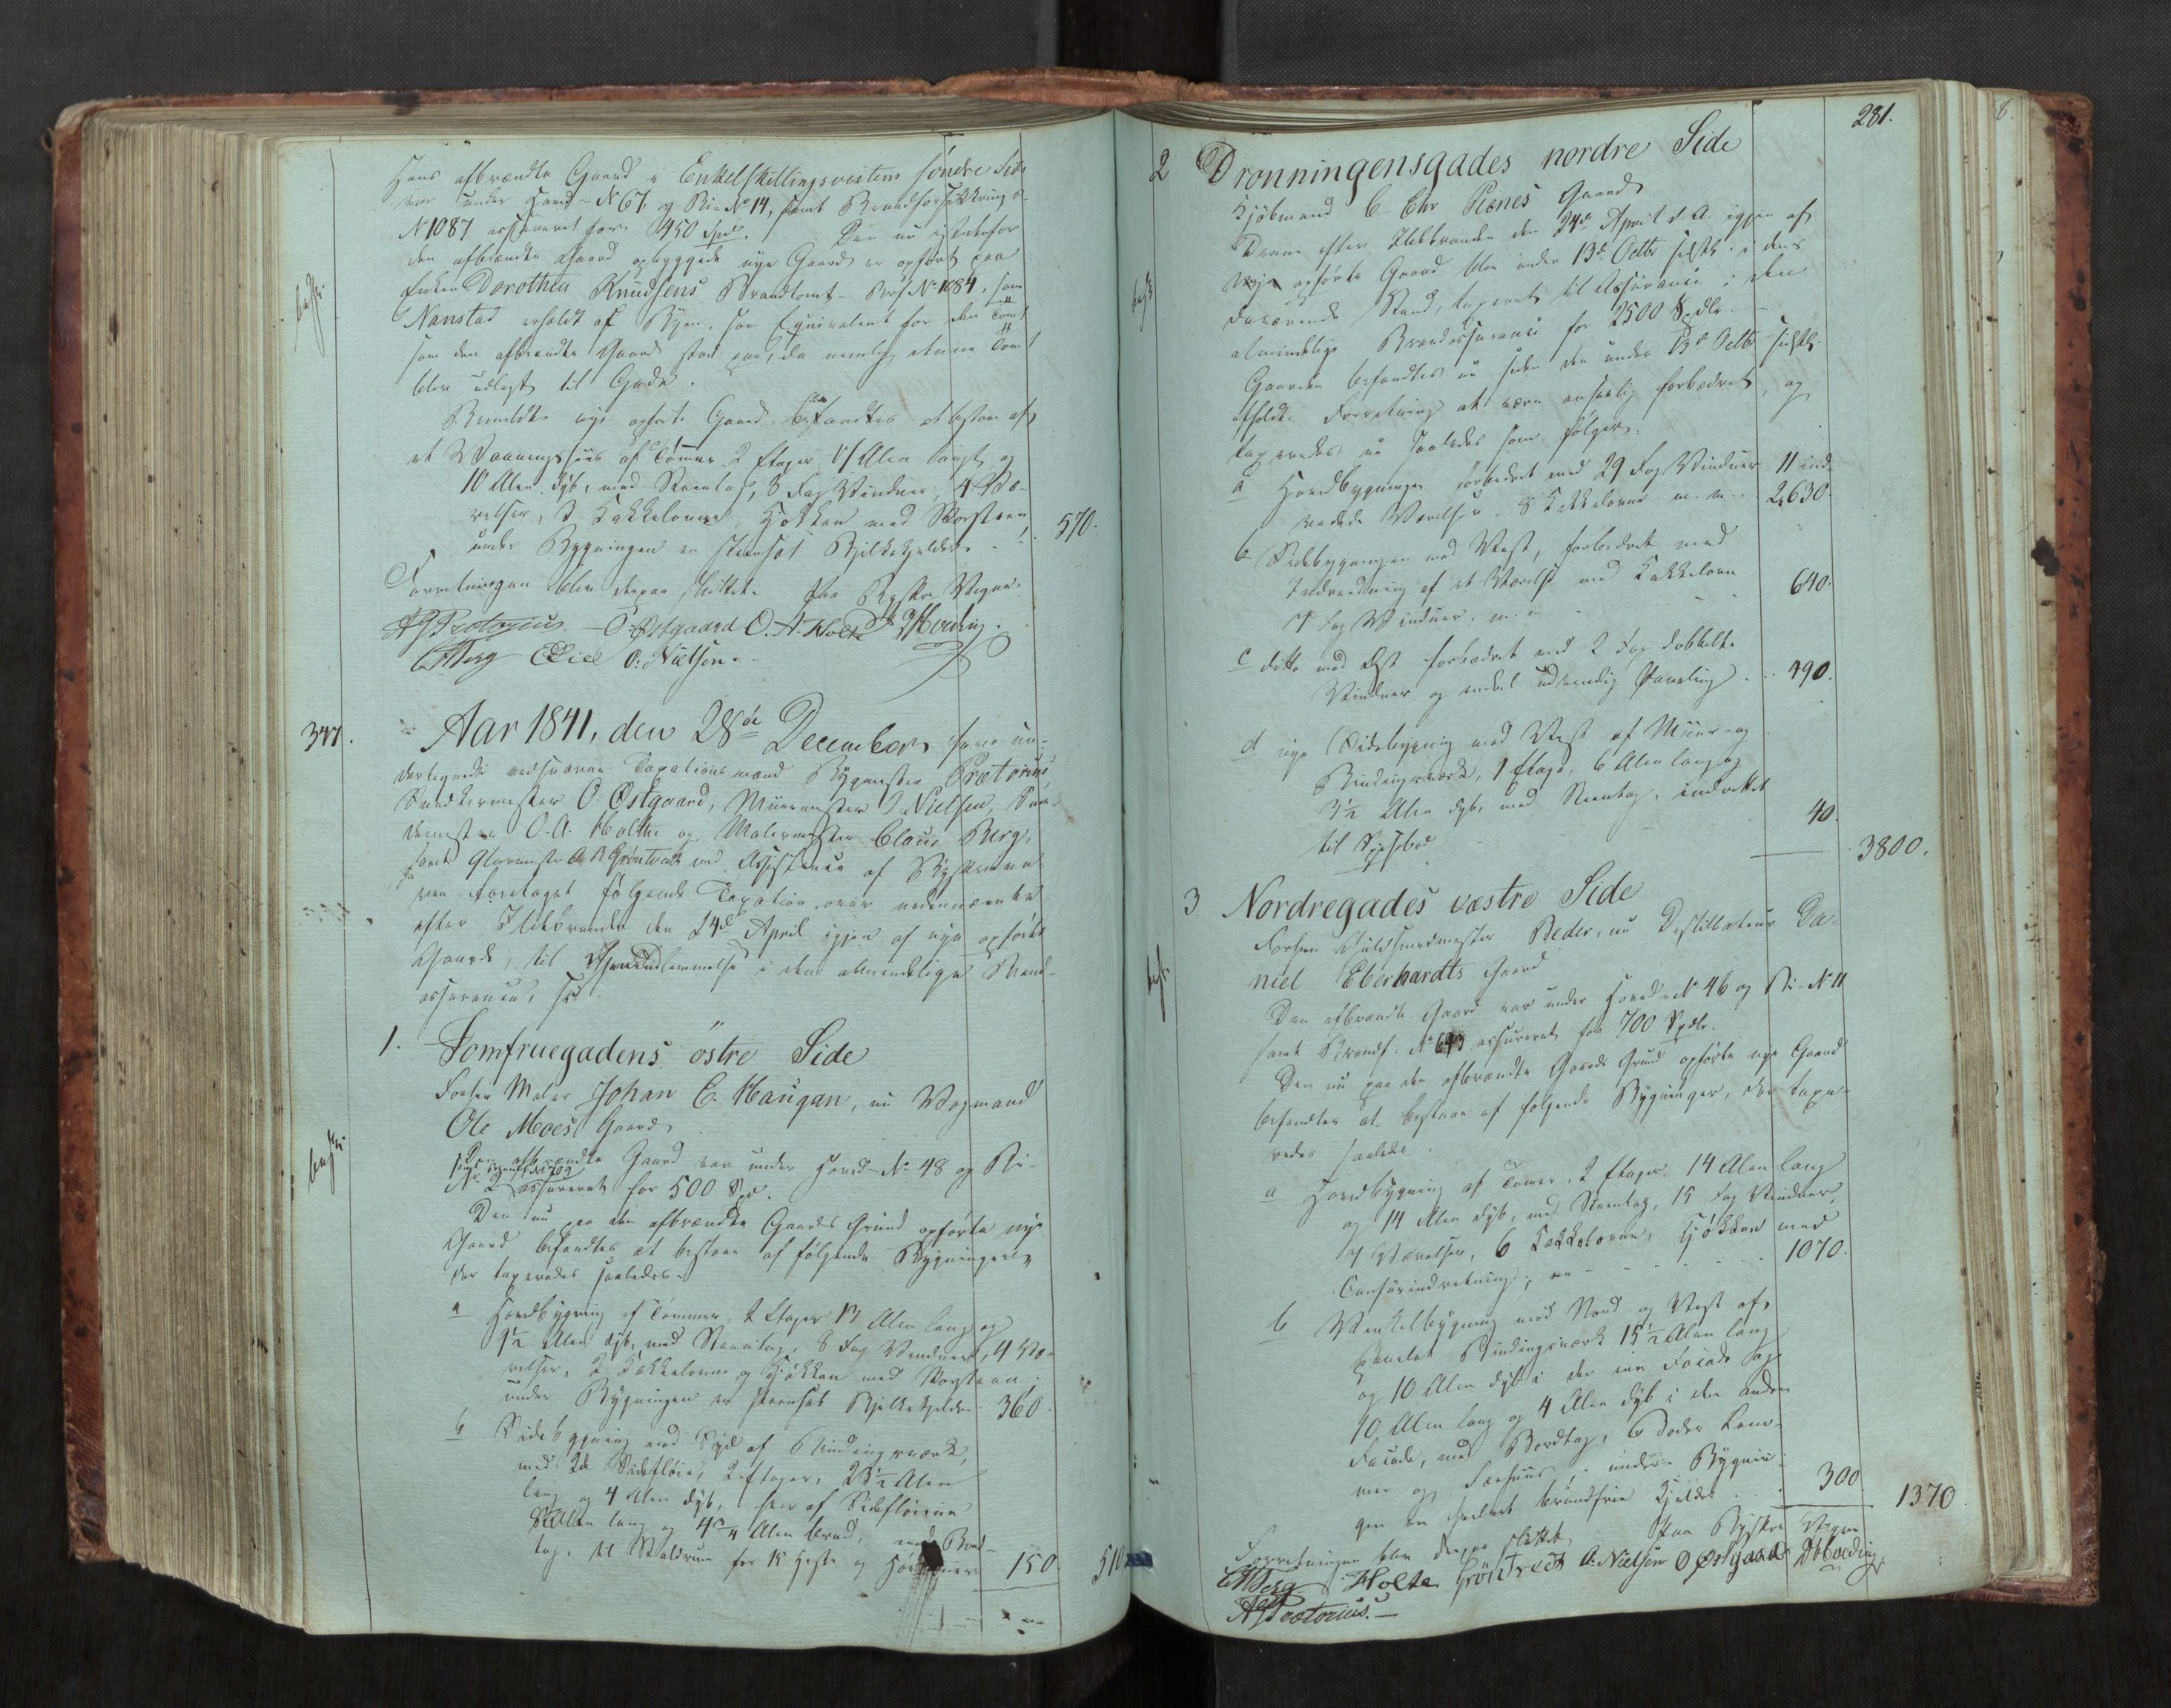 Hans afbrændte Gaard i Enkelskillingsveitens søndre Side
var under Hoved-No 67. og Bi-No 14, samt Brandforsikkrings
No 1087 assureret for 450 Spd. Den nu istedenfor
den afbrændte Gaard opbyggede nye Gaard er opført paa
Enken Dorothea Knudsens Brandtomt - Brf No 1084, som
Nanstad erholdt af Byen, som Equivalent for den Tomt
som den afbrændte Gaard stod paa, da nemlig denne Tomt
blev udlagt til Gade.
Bemeldte nye opførte Gaard befandtes at bestaae af
et Vaaningshuus af Tømmer 2 Etager 17 Alen langt og
10 Alen dyb, med Steentag, 8 Fag Vinduer, 4 Væ-
relser, 3 Kakkelovne Kjøkken med Skorsteen
under Bygningen en steensat Bjelkekjelder. - 570.
Forretningen blev derpaa sluttet. Paa Byskr. Vegne
A Prætorius O. Østgaard O. A. Holte Hveding.
C Berg O. Nielsen.
347. Aar 1841, den 28de December have un-
dertegnede edsvorne Taxationsmænd Bygmester Prætorius
Snedkermester O. Østgaard, Muurmester O Nielsen, Sme-
demester O. A. Holthe og Malermester Claus Berg,
samt Glarmester Grøntvedt med Assistence af Byskriveren
foretaget følgende Taxation over nedennævnte
efter Ildebranden den 24de April igjen af nye opførte
Gaarde, til Indlemmelse i den almindelige Brand-
assurance,
1. Jomfruegadens østre Side
Forhen Maler Johan C. Haugan, nu Vogmand
Ole Moes Gaard
Den afbrændte Gaard var under Hoved-No 48 og Bi-
samt Brandf. No 709
No 2 assureret for 500 Spd.
Den nu paa den afbrændte Gaards Grund opførte nye
Gaard befandtes at bestaae af følgende Bygninger,
der taxeredes saaledes.
a Hovedbygning af Tømmer, 2 Etager 13 Alen lang og
9½ Alen dyb, med Steentag, 8 Fag Vinduer, 4 Væ-
relser, 2 Kakkelovne og Kjøkken med Skorsteen;
under Bygningen en steensat Bjelkekjelder 360.
b Sidebygning mod Syd af Bindingsværk,
med 2de Sidefløie, 2 Etager, 23½ Alen
lang og 4 Alen dyb, hver af Sidefløiene
Alen lang og 4¾ Alen bred, med Bord-
tag, til Staldrum for 15 Heste og 150 510
281.
2 Dronningensgades nordre Side
Kjøbmand C. Chr Plenes Gaard
Denne efter Ildebranden den 24de April d. A. igjen af
Nye opførte Gaard blev under 13de Octbr sidstl. i dens
daværende Stand, taxeret til Assurance i den
almindelige Brandassurance for 2500 Spdlr.
Gaarden befandtes nu siden den under 13de Octbr sidstl.
afholdte Forretning at være anseelig forbedret, og
taxeredes nu saaledes som følger:
a Hovedbygningen forbedret med 29 Fag Vinduer 11 ind-
redede Værelser, 8 Kakkelovne m. m. 2,630.
b Sidebygningen mod Vest, forbedret med
Indredning af et Værelse med Kakkelovn
7 Fag Vinduer. m. m 640.
c ditto mod Øst forbedret med 2 Fag dobbelte
Vinduer og endeel udvendig Paneling 490.
d nye Sidebygning mod Vest af Muur- og
Bindingsværk, 1 Etage, 6 Alen lang og
3½ Alen dyb, med Steentag, indrettet
til 40. 3800.
3. Nordregades vestre Side
Forhen Guldsmedmester Beder, nu Destillateur Da-
niel Eberhardts Gaard
Den afbrændte Gaard var under Hoved-No 46 og Bi-No 11
samt Brandf. No assureret for 700 Spdlr.
Den nu paa den afbrændte Gaards Grund opførte nye Gaard
befandtes at bestaae af følgende Bygninger, der taxe-
redes saaledes:
a Hovedbygning af Tømmer, 2 Etager 14 Alen lang
og 14 Alen dyb, med Steentag, 15 Fag Vinduer,
7 Værelser, 6 Kakkelovne, Kjøkken med
Comfurindretning, 1070.
b Vinkelbygning mod Nord og Vest af
panelet Bindingsværk 15½ Alen lang
og 10 Alen dyb i den ene Facade og
10 Alen lang og 4 Alen dyb i den anden
Facade, med Bordtag,
mer og Fæehuus, under Bygnin-
gen en hvelvet brandfrie Kjelder 300 1370
Forretningen blev derpaa sluttet Paa Byskr Vegne
C Berg Holte Gröntvedt O. Nielsen O Østgaard Hveding.
A Prætorius.